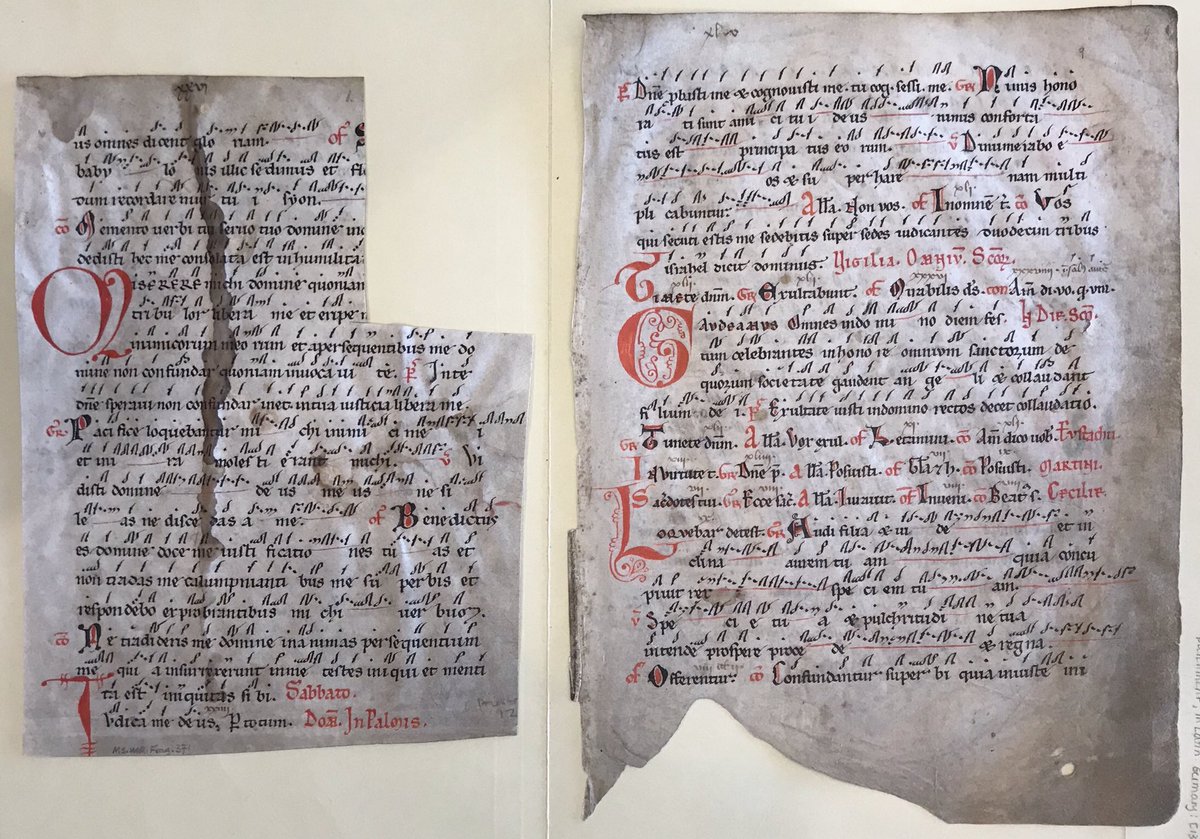 xxvi
us omnes dicent glo riam. of S
baby lo nis illic sedimus et fle
dum recordare mur tu i syon.
co Memento verbi tui servo tuo domine in
dedisti hec me consolata est in humilita
Miserere michi domine quoniam
tribu lor libera me et eripe
inimicorum meo rum et a persequentibus me do
mine non confundar quoniam invoca vi te. Ps In te
dne speravi non confundar inet. in tua iusticia libera me.
GR Paci fice loquebantur mi chi inimi ci me i
et in i ra moles ti erant michi. V Vi
disti domine de us me us ne si
le as ne disce das a me. of Benedictus
es domine doce me iusti ficatio nes tu as et
non tradas me calumpnianti bus me su per bis et
respondebo exprobrantibus mi chi ver bum.
co Ne tradideris me domine in animas persequentium
me qui a insurrexerunt in me testes iniqui et menti
ta est iniquitas si bi. Sabbato.
xxiii
Iudica me de us, P totum. Dom. In Palmis.
MS. Frag. 37
xlv
9
Ps Dne pbasti me & cognovisti me. tu cog. sessi. me. GR Nimis hono
ra ti sunt ami ci tu i de us nimis conforta
tus est principa tus eo rum. V Dinumerabo e
os & su per hare nam multi
xli
pli cabuntur. Alla. Non vos. of In omnem t. co Vos
qui secuti estis me sedebitis super sedes iudicantes duodecim tribus
israhel dicit dominus. Vigilia. Omnium. Scor.
Timete dnm. GR Exultabunt. of Mirabilis ds. com Am di. vo. q. vm.
Gaudeamus Omnes in do mi no diem fes.
tum celebrantes in hono re omnium sanctorum de
quorum societate gaudent an ge li & collaudant
fi lium de i. Ps Exultate iusti in domino rectos decet collaudatio.
GR Timete dnm. Alla. Vox exul. of Letamini. co Am dico vob. Eustachii
In virtute t. GR Dne p. Alla. Posuisti. of co Posuisti. Martini.
Sacerdotes tui. GR Ecce sac. Alla. Inveni. co Beatus s. Cecilie.
Loquebar de test. GR Audi filia & vi de et in
clina aurem tu am quia concu
pivit rex spe ci em tu am.
V Spe ci e tu a & pulchritudi ne tua
intende prospere proce de & regna.
of Offerentur. co Confundantur super bi quia iniuste ini